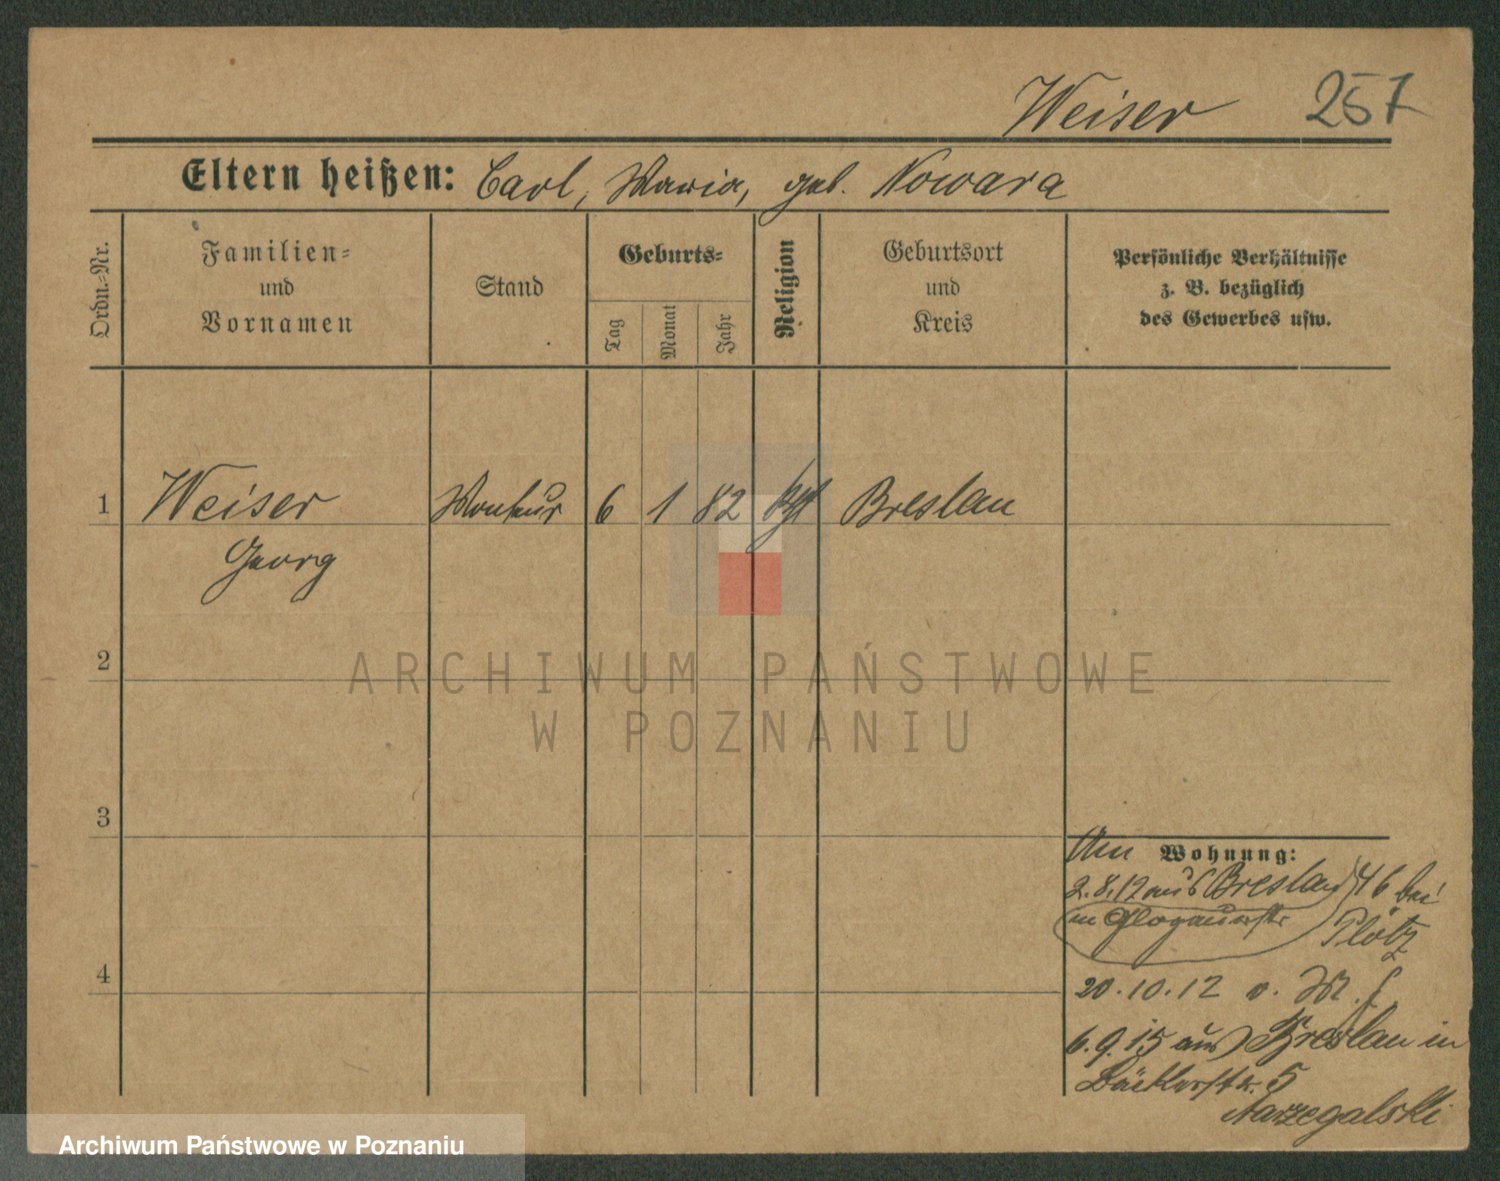 Weiser 257
Eltern heißen: Carl, Maria, geb. Nowara
Ordn.-Nr.
Familien-
und
Vornamen
Stand
Geburts-
Tag
Monat
Jahr
Religion
Geburtsort
und
Kreis
Persönliche Verhältnisse
z. B. bezüglich
des Gewerbes usw.
1 Weiser Monteur 6 1 82 Breslau
Georg
2
3
4
Wohnung:
2.8.12 aus Breslau 46 bei
in Glogauerstr Plötz
20.10.12 v.
6.9.15 aus Breslau in
Bäckerstr. 5
ARCHIWUM PAŃSTWOWE
W POZNANIU
Archiwum Państwowe w Poznaniu